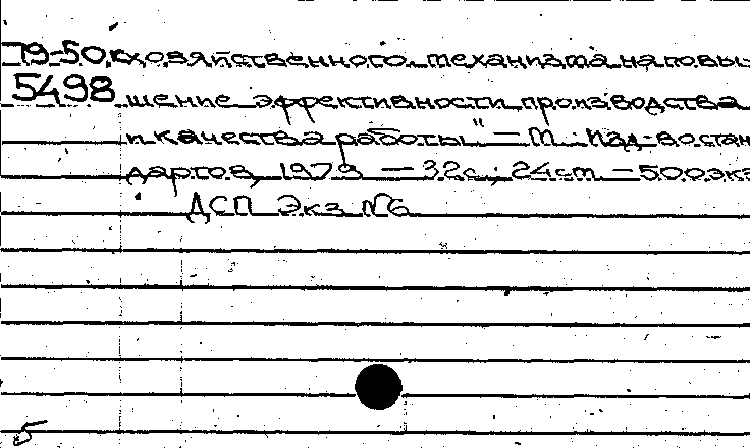 79-50к хозяйственного механизма на повы-
5498 шение эффективности производства
и качества работы" — М.: Изд-во стан
дартов, 1979 — 32с; 24cm — 500экз
ДСП Экз №6
5